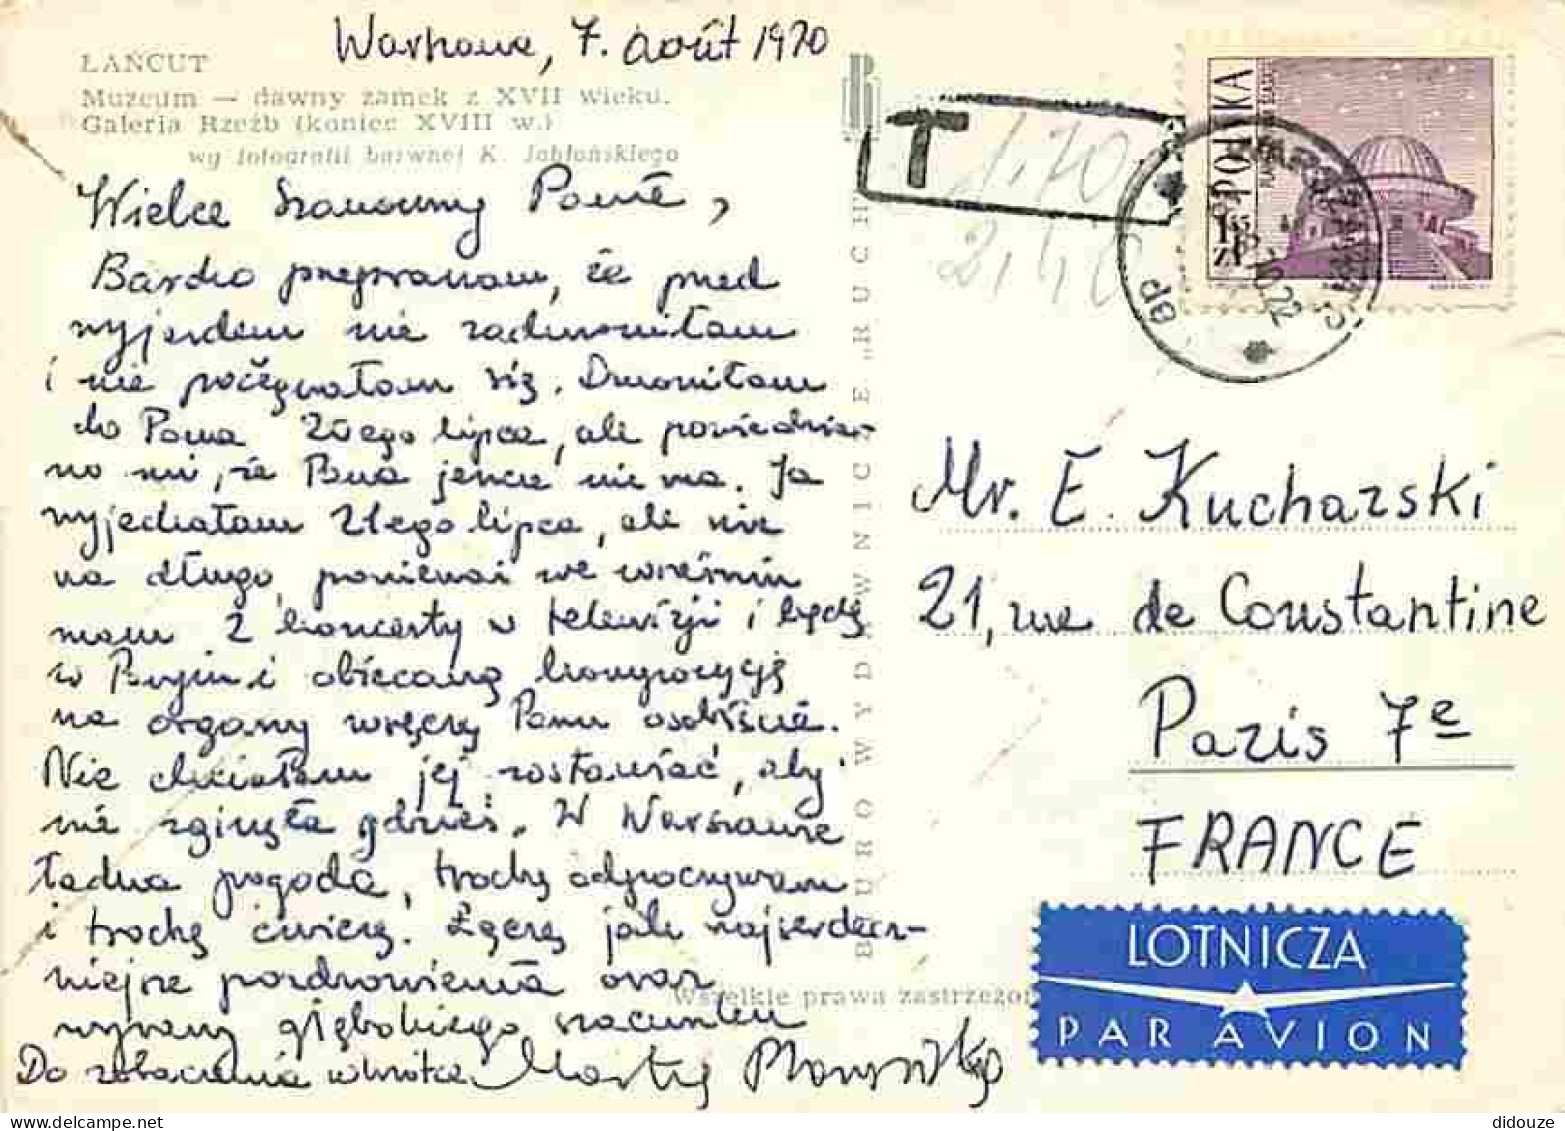 Warszawa, 7. août 1970
ŁAŃCUT
Muzeum — dawny zamek z XVII wieku.
Galeria Rzeźb (koniec XVIII w.)
wg fotografii barwnej K. Jabłońskiego
Wielce Szanowny Panie,
Bardzo przepraszam, że przed
wyjazdem nie zadzwoniłam
i nie pożegnałam się. Dzwoniłam
do Pana 20ego lipca, ale powiedzia-
no mi, że Pana jeszcze nie ma. Ja
wyjechałam 21ego lipca, ale nie
na długo, ponieważ we wrześniu
mam 2 koncerty w telewizji i będę
w Paryżu i obiecaną kompozycję
na organy wręczę Panu osobiście.
Nie chciałam jej zostawiać, aby
nie zginęła gdzieś. W Warszawie
ładna pogoda, trochę odpoczywam
i trochę ćwiczę. Łączę jak najserdecz-
niejsze pozdrowienia oraz
wyrazy głębokiego szacunku
Do zobaczenia wkrótce
BIURO WYDAWNICZE „RUCH"
T
1,70
POLSKA
Mr. E. Kucharski
21, rue de Constantine
Paris 7e
FRANCE
LOTNICZA
PAR AVION
Wszelkie prawa zastrzeżon
didouze